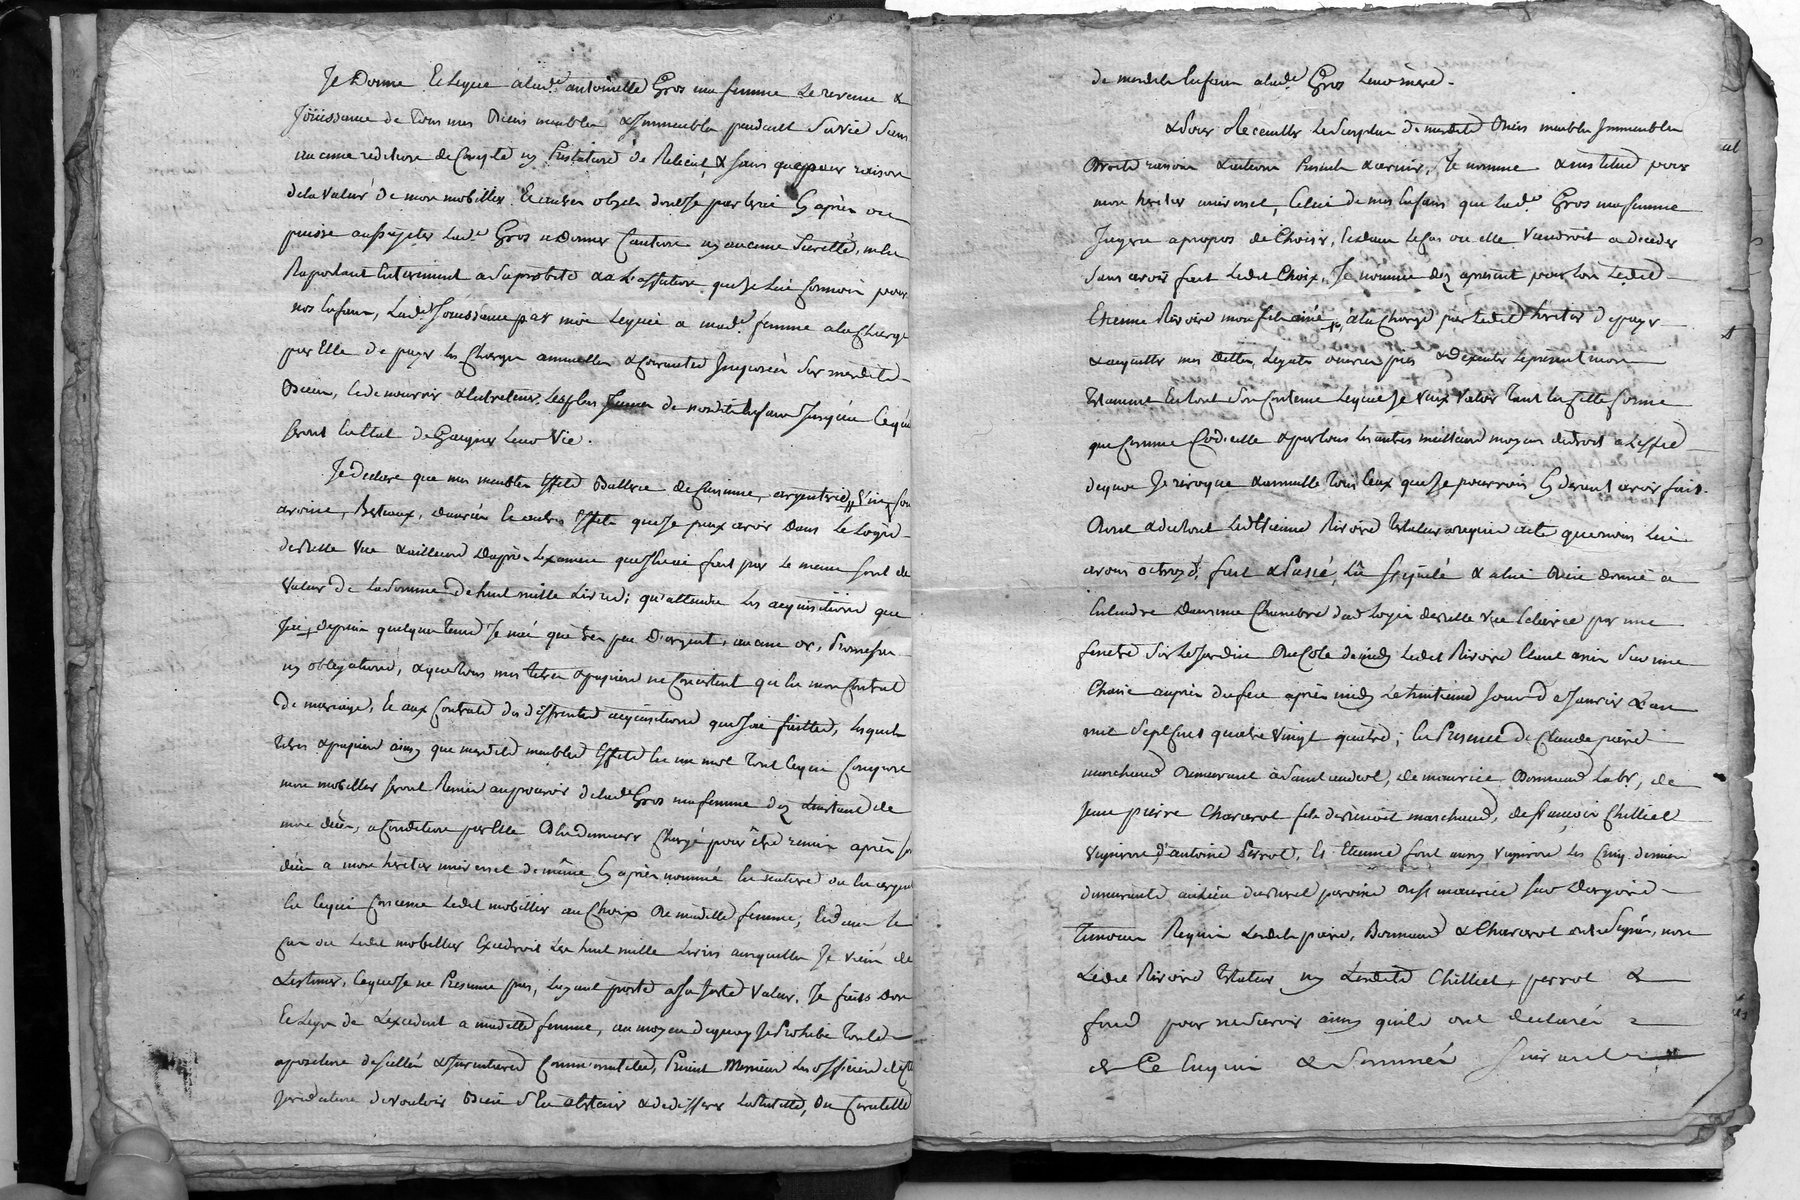 Je Donne Et Legue a lad.e antoinette Gros ma femme Le revenu &
Joüissance de Tous mes Biens meubles & Immeubles pendant Sa vie Sans
aucune reddition de Compte ny Prestation de Relicat, & sans que pour raison
de la valeur de mon mobilier Et autres objets dont Se parlera Cy après on
puisse assujeter Lad.e Gros a Donner Caution ny aucune Sureté, m'en
Raportant Entierement a Sa probité & a L'affection que Je Lui Connois pour
nos Enfans, Lad.e Joüissance par moi Leguée a mad.e femme a la Charge
par Elle de payer les Charges annuelles & Courantes Imposées Sur mesdits
Biens, Et de nourrir & Entretenir Les plus Jeunes de nosdits Enfans Jusqu'a Ce qu'ils
Seront En Etat de Gaigner Leur Vie.
Je Declare que mes meubles Effets Batterie de Cuisine, argenterie, Vin, foin
avoine, Bestiaux, Danrées Et autres Effets que Je peux avoir Dans Le Logis
de Belle Vue & ailleurs Dapprès Lexamen que J'en ai fait par Le menu Sont de
Valeur de La Somme de huit mille Livres; qu'attendu Les acquisitions que
J'ai depuis quelque Tems Je n'ai que très peu D'argent, aucune or, Promesses
ny obligations, & que tous mes titres & papiers ne Consistent qu'En mon Contrat
De mariage, Et aux Contrats des differentes acquisitions que J'ai faittes, Lesquels
titres & papiers ainsy que mesdits meubles Effets En un mot Tout Ce qui Compose
mon mobilier Seront Remis au pouvoir de lad.e Gros ma femme dez Linstant de
mon décès, a Condition par Elle De Demeurer Chargé pour être remis après Son
décès a mon heritier universel de même Cy après nommé En nature ou En argent
En Ce qui Concerne Ledit mobilier au Choix De madite femme; Et dans le
Cas ou Ledit mobilier Excedroit Les huit mille Livres auxquelles Je viens de
L'estimer, Ce que Je ne Presume pas, L'ayant porté a Sa Juste Valeur, Je fais Don
Et Legs de Lexcedent a madite femme, au moyen de quoy Je Prohibe Toute
aposition de Scellés & Inventaires Priant Messieurs Les officiers de Cette
Jurisdiction de vouloir Bien S'En abstenir & de deffferer La tutelle, Ou Curatelle
de mesdits Enfans a lad.e Gros Leur mere.
& Pour Recueillir Le Surplus de mesdits Biens meubles Immeubles
Droits raisons & actions Presents & avenir, Je nomme & institue pour
mon heritier universel, Celui de mes Enfans que Lad.e Gros ma femme
Jugera apropos de Choisir, Et dans Le Cas ou elle Viendroit a Deceder
Sans avoir fait Ledit Choix, Je nomme dez apresent pour lors Ledit
Etienne Rivoire mon fils ainé, a la Charge par Ledit heritier de payer
& acquitter mes Dettes, Legats œuvres pies & dexecuter Le present mon
Testament En tout Son Contenu Lequel Je Veux Valoir Tant En Cette forme
que Comme Codicille & par tous Les autres meilleurs moyens de droit a L'effet
dequoi Je revoque & annulle Tous Ceux que Je pourrois Cy devant avoir fait.
Dont & du tout Led. Etienne Rivoire Testateur a requis acte que nous Lui
avons octroyé, fait & Passé, Lû Stipulé & a lui Bien donné a
Entendre Dans une Chambre dud. Logis de Belle vue Eclairée par une
fenetre Sur Le Jardin Du Coté de midy Ledit Rivoire Etant assis Sur une
Chaise auprès du feu après midy Le trentieme Jour De Janvier L'an
mil Sept Cent quatre Vingt quatre; En Presence de Claude
marchand Demeurant à Saint andeol, de maurice Bonnand Lab.r, de
Jean pierre Chavarot fils de Benoit marchand, de françois Chilliet
Vigneron d'antoine Perrot, Et Etienne font aussy Vigneron Les Cinq derniers
demeurants audit Bourg paroisse de St maurice Sur Dargoire
Temoins Requis Lesdits Bonnand & Chavarot ont Signé, non
Ledit Rivoire Testateur ny Lesdits Chilliet, perrot &
font pour ne Savoir ainsy qu'ils ont declaré
de Ce Enquis & Sommés Suivant